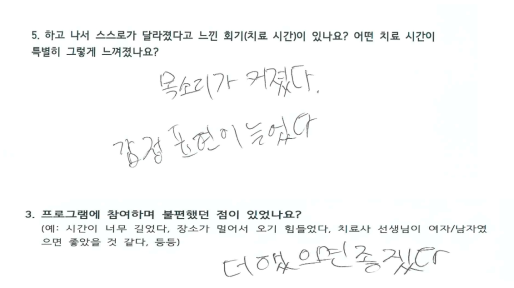 5. 하고 나서 스스로가 달라졌다고 느낀 회기(치료 시간)이 있나요? 어떤 치료 시간이
특별히 그렇게 느껴졌나요?
목소리가 커졌다.
감정 표현이 늘었다
3. 프로그램에 참여하며 불편했던 점이 있었나요?
(예: 시간이 너무 길었다, 장소가 멀어서 오기 힘들었다, 치료사 선생님이 여자/남자였
으면 좋았을 것 같다, 등등)
더 했으면 좋겠다